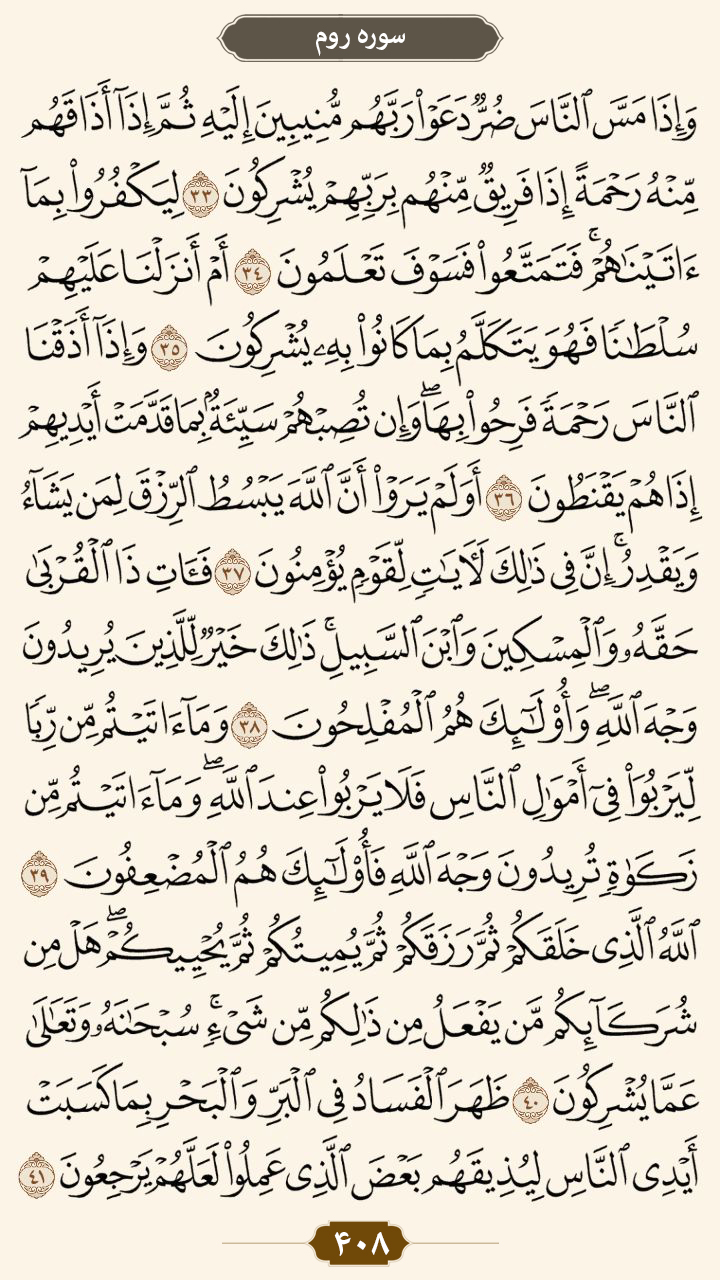 سوره روم
وَإِذَا مَسَّ ٱلنَّاسَ ضُرٌّ دَعَوْا۟ رَبَّهُم مُّنِيبِينَ إِلَيْهِ ثُمَّ إِذَآ أَذَاقَهُم
مِّنْهُ رَحْمَةً إِذَا فَرِيقٌ مِّنْهُم بِرَبِّهِمْ يُشْرِكُونَ ٣٣ لِيَكْفُرُوا۟ بِمَآ
ءَاتَيْنَٰهُمْ ۚ فَتَمَتَّعُوا۟ فَسَوْفَ تَعْلَمُونَ ٣٤ أَمْ أَنزَلْنَا عَلَيْهِمْ
سُلْطَٰنًا فَهُوَ يَتَكَلَّمُ بِمَا كَانُوا۟ بِهِۦ يُشْرِكُونَ ٣٥ وَإِذَآ أَذَقْنَا
ٱلنَّاسَ رَحْمَةً فَرِحُوا۟ بِهَا ۖ وَإِن تُصِبْهُمْ سَيِّئَةٌۢ بِمَا قَدَّمَتْ أَيْدِيهِمْ
إِذَا هُمْ يَقْنَطُونَ ٣٦ أَوَلَمْ يَرَوْا۟ أَنَّ ٱللَّهَ يَبْسُطُ ٱلرِّزْقَ لِمَن يَشَآءُ
وَيَقْدِرُ ۚ إِنَّ فِى ذَٰلِكَ لَءَايَٰتٍ لِّقَوْمٍ يُؤْمِنُونَ ٣٧ فَـَٔاتِ ذَا ٱلْقُرْبَىٰ
حَقَّهُۥ وَٱلْمِسْكِينَ وَٱبْنَ ٱلسَّبِيلِ ۚ ذَٰلِكَ خَيْرٌ لِّلَّذِينَ يُرِيدُونَ
وَجْهَ ٱللَّهِ ۖ وَأُو۟لَٰٓئِكَ هُمُ ٱلْمُفْلِحُونَ ٣٨ وَمَآ ءَاتَيْتُم مِّن رِّبًا
لِّيَرْبُوَا۟ فِىٓ أَمْوَٰلِ ٱلنَّاسِ فَلَا يَرْبُوا۟ عِندَ ٱللَّهِ ۖ وَمَآ ءَاتَيْتُم مِّن
زَكَوٰةٍ تُرِيدُونَ وَجْهَ ٱللَّهِ فَأُو۟لَٰٓئِكَ هُمُ ٱلْمُضْعِفُونَ ٣٩
ٱللَّهُ ٱلَّذِى خَلَقَكُمْ ثُمَّ رَزَقَكُمْ ثُمَّ يُمِيتُكُمْ ثُمَّ يُحْيِيكُمْ ۖ هَلْ مِن
شُرَكَآئِكُم مَّن يَفْعَلُ مِن ذَٰلِكُم مِّن شَىْءٍ ۚ سُبْحَٰنَهُۥ وَتَعَٰلَىٰ
عَمَّا يُشْرِكُونَ ٤٠ ظَهَرَ ٱلْفَسَادُ فِى ٱلْبَرِّ وَٱلْبَحْرِ بِمَا كَسَبَتْ
أَيْدِى ٱلنَّاسِ لِيُذِيقَهُم بَعْضَ ٱلَّذِى عَمِلُوا۟ لَعَلَّهُمْ يَرْجِعُونَ ٤١
۴۰۸